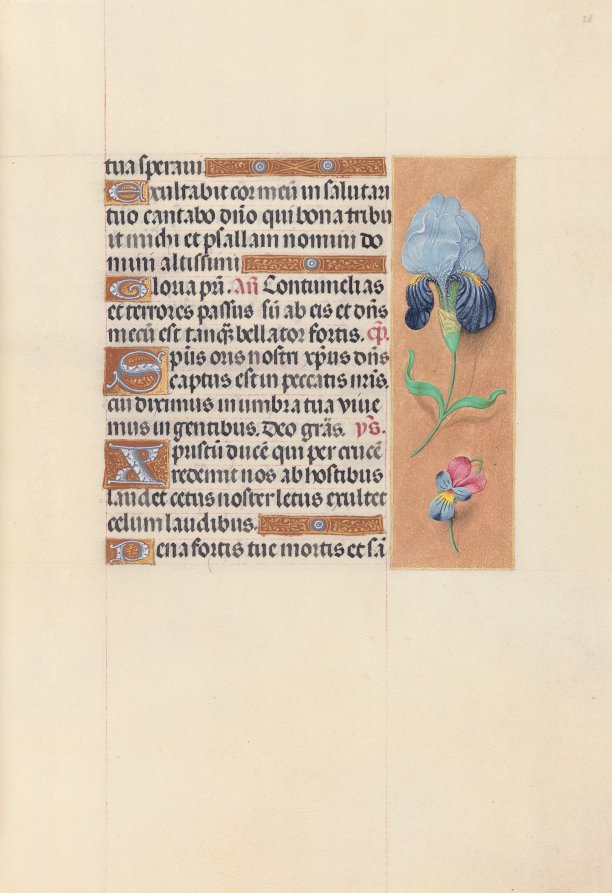 58
tua speraui
Exultabit cor meū in salutari
tuo cantabo dño qui bona tribu
it michi et psallam nomini do
mini altissimi
Gloria pñ. Añ Contumelias
et terrores passus sū ab eis et dñs
mecū est tanq̄ bellator fortis. cp̄.
Spūs oris nostri xpūs dñs
captus est in peccatis nris.
cui diximus in umbra tua viue
mus in gentibus. Deo grãs. ys.
Xpristū ducē qui per crucē
redemit nos ab hostibus
laudet cetus noster letus exultet
celum laudibus.
Pena fortis tue mortis et sā